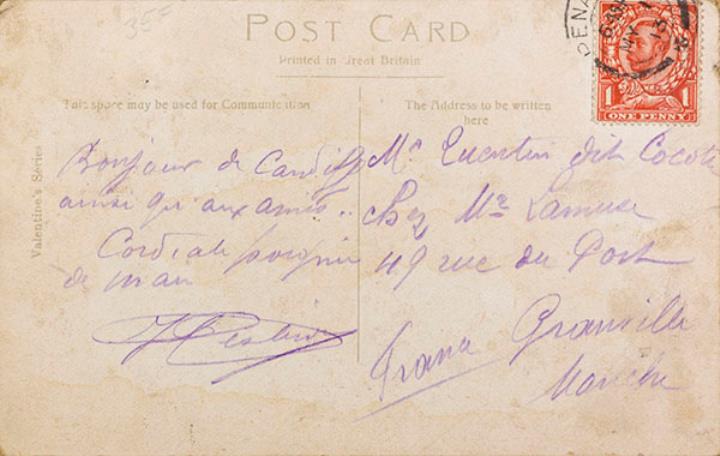 35F
POST CARD
Printed in Great Britain
This space may be used for Communication
The Address to be written
here
Valentine's Series
PENA
MY
13
1 ONE PENNY
Bonjour de Cardiff
ainsi qu'aux amis..
Cordiale poignée
de main
Mr Quentin dit Cocot
chez Mr
49 rue du Port
Granville
Manche
France